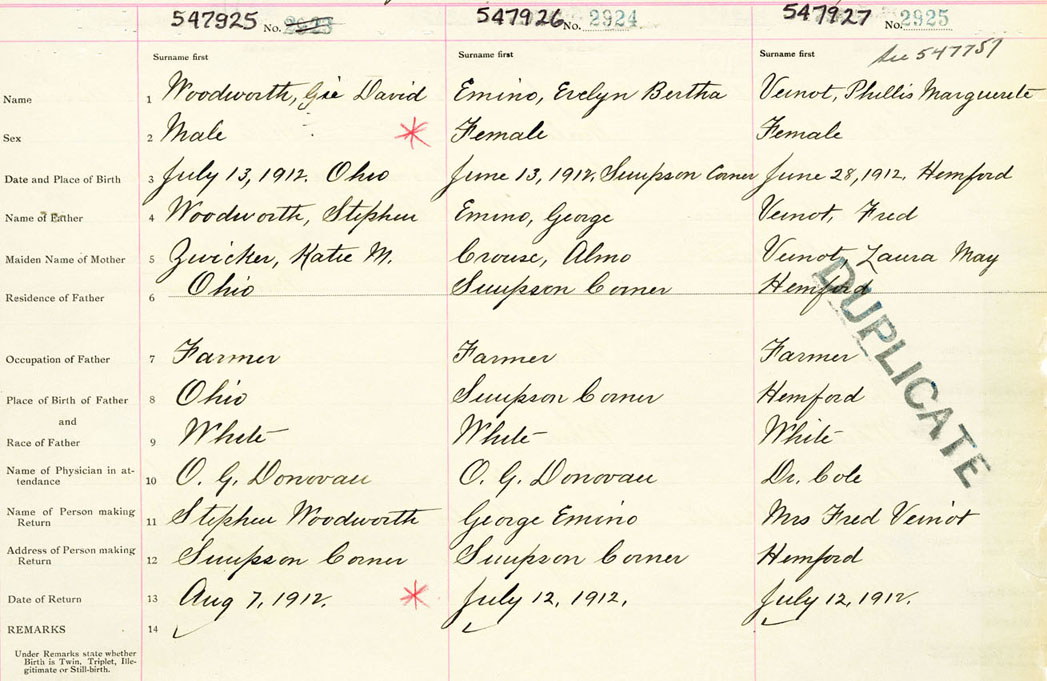 547925 No. 2923 547926 No. 2924 547927 No. 2925
Surname first Surname first Surname first See 547757
Name 1 Woodworth, David Emino, Evelyn Bertha Veinot, Phillis Marguerete
Sex 2 Male Female Female
Date and Place of Birth 3 July 13, 1912. Ohio June 13, 1912, Simpson Corner June 28, 1912, Hemford
Name of Father 4 Woodworth, Stephen Emino, George Veinot, Fred
Maiden Name of Mother 5 Zwicker, Katie M. Crouse, Almo Veinot, Laura May
Residence of Father 6 Ohio Simpson Corner Hemford
DUPLICATE
Occupation of Father 7 Farmer Farmer Farmer
Place of Birth of Father 8 Ohio Simpson Corner Hemford
and
Race of Father 9 White White White
Name of Physician in at-
tendance 10 O. G. Donovan O. G. Donovan Dr. Cole
Name of Person making
Return 11 Stephen Woodworth George Emino Mrs Fred Veinot
Address of Person making
Return 12 Simpson Corner Simpson Corner Hemford
Date of Return 13 Aug 7, 1912. July 12, 1912, July 12, 1912.
REMARKS 14
Under Remarks state whether
Birth is Twin, Triplet, Ille-
gitimate or Still-birth.